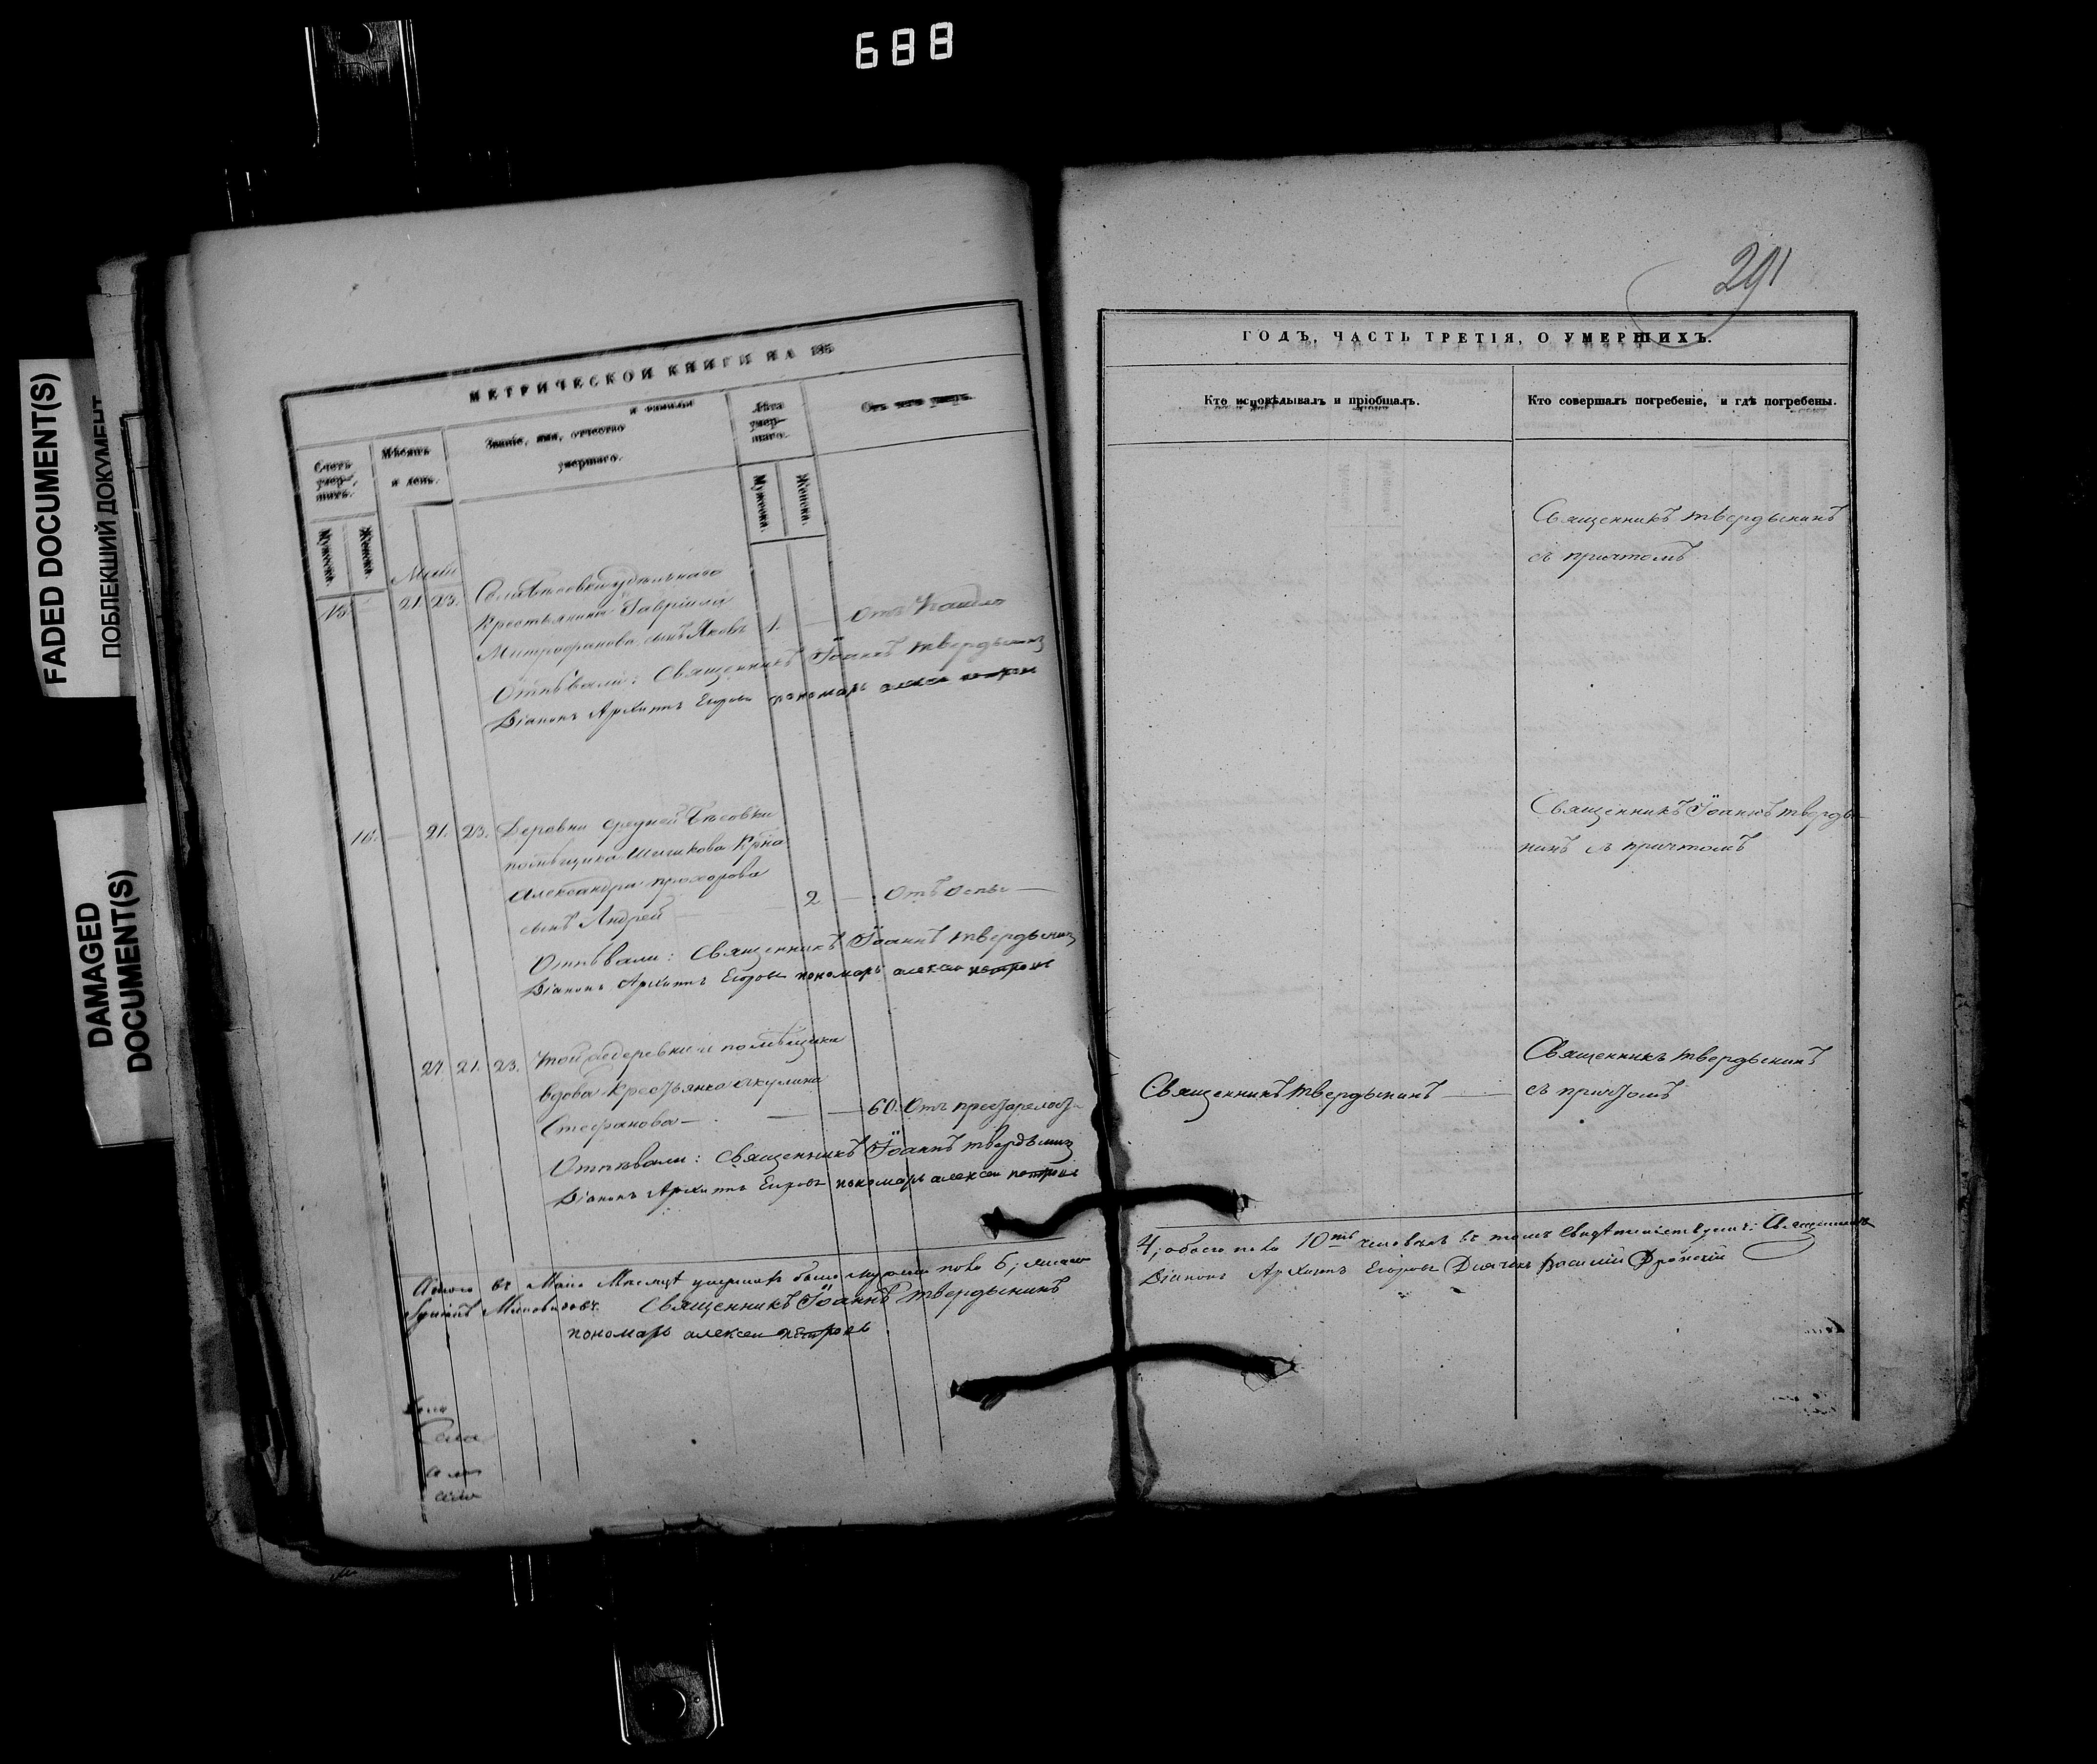 688
FADED DOCUMENT(S)
ПОБЛЕКШИЙ ДОКУМЕНТ
DAMAGED
DOCUMENT(S)
МЕТРИЧЕСКОЙ КНИГИ НА 185
Счетъ умер-шихъ.
Мужеска.
Женска.
Мѣсяцъ и день.
Званіе, имя, отчество и фамилія умершаго.
Лѣта умер-шаго.
Мужеска.
Женска.
Отъ чего умеръ.
Маій
21. 23.
Крестьянина Гавріила
Митрофанова сынъ Яковъ 1. — Отъ Кашля
Отпѣвали: Священникъ Іоаннъ Твердынинъ
Діаконъ Архипъ Егоровъ пономарь алексеи петровъ
16. — 21. 23. Деревни Средней Бѣсовки
помѣщика Шишкова Кр͠на
Александра Прохорова
сынъ Андрей 2 — Отъ Оспы —
Отпѣвали: Священникъ Іоаннъ Твердынинъ
Діаконъ Архипъ Егоровъ пономарь алексеи петровъ
21. 23. Той же деревни и помѣщика
вдова крестьянка Акулина
Стефанова — 60. Отъ престарелост
Отпѣвали: Священникъ Іоаннъ Твердынинъ
Діаконъ Архипъ Егоровъ пономарь алексеи петровъ
Маіѣ Месяцѣ умершихъ было мужеска пола 6; женска
Священникъ Іоаннъ Твердынинъ
пономарь алексеи петровъ
291
ГОДЪ, ЧАСТЬ ТРЕТІЯ, О УМЕРШИХЪ.
Кто исповѣдывалъ и пріобщалъ.
Кто совершалъ погребеніе, и гдѣ погребены.
Священникъ Твердынинъ
съ причтомъ
Священникъ Іоаннъ Тверды-
нинъ съ причтомъ
Священникъ Твердынинъ —
Священникъ Твердынинъ
съ причтомъ
4; обоего пола 10ть человѣкъ въ томъ свидѣтельствуемъ: Священникъ
Діаконъ Архипъ Егоровъ Дьячекъ Василій